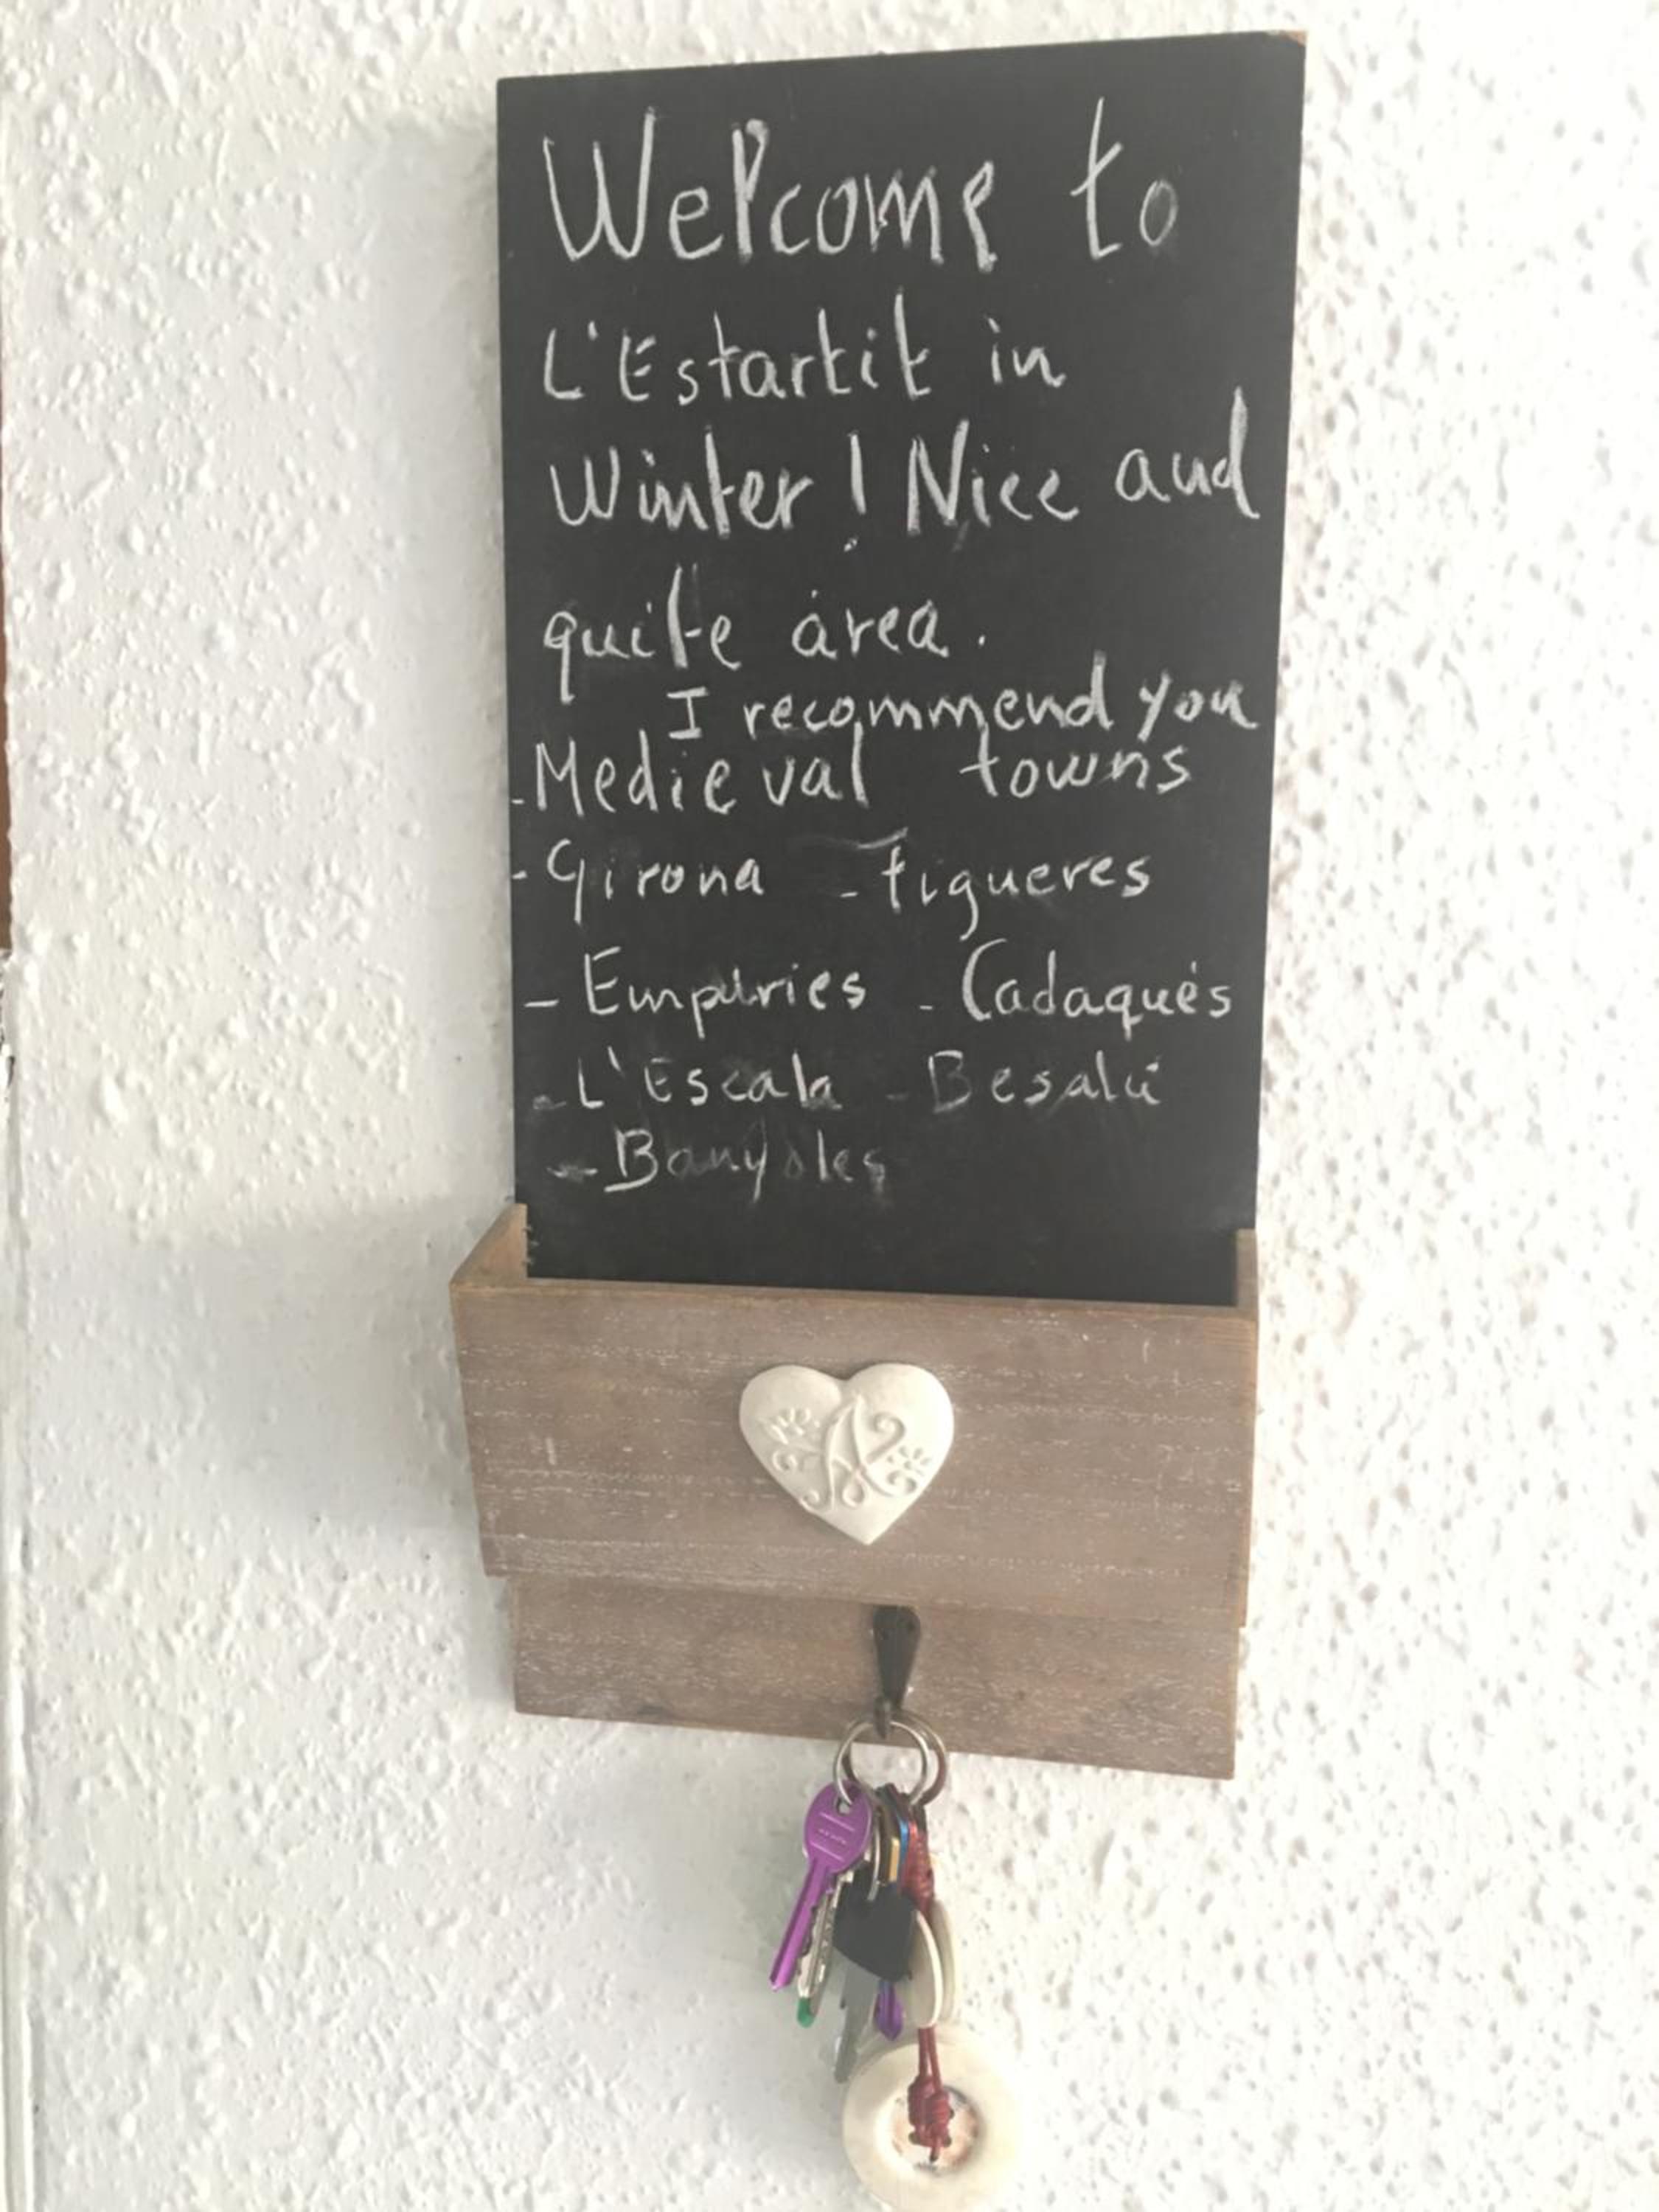 Welcome to
L'Estartit in
Winter! Nice and
quite área.
I recommend you
-Medieval towns
-Girona - Figueres
- Empúries - Cadaqués
- L'Escala - Besalú
- Banyoles